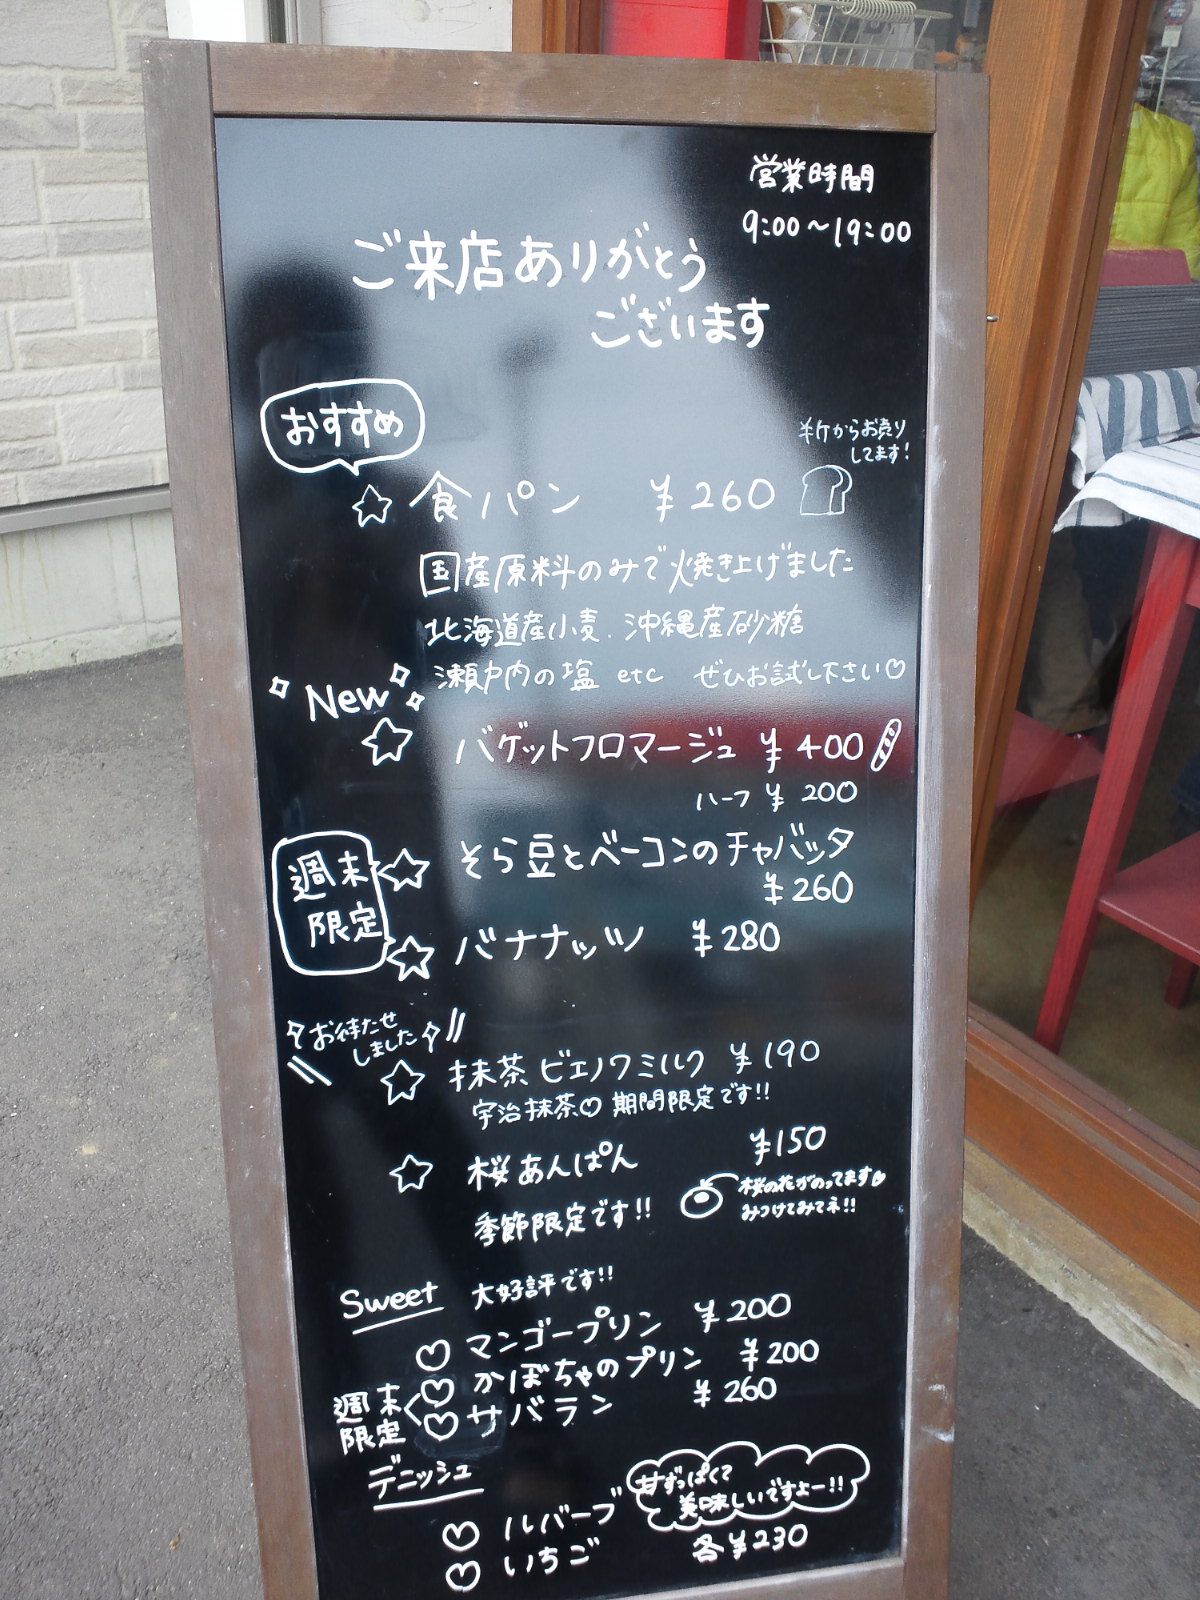 営業時間
9:00〜19:00
ご来店ありがとう
ございます
おすすめ
半斤からお売り
してます!
☆ 食パン ¥260
国産原料のみで焼き上げました
北海道産小麦、沖縄産砂糖
瀬戸内の塩 etc ぜひお試し下さい♡
New
☆ バゲットフロマージュ ¥400
ハーフ ¥200
週末
限定
☆ そら豆とベーコンのチャバッタ
¥260
☆ バナナッツ ¥280
お待たせ
しました
☆ 抹茶ビエノワミルク ¥190
宇治抹茶♡ 期間限定です!!
☆ 桜あんぱん ¥150
桜の花がのってます
みつけてみてネ!!
季節限定です!!
Sweet 大好評です!!
♡ マンゴープリン ¥200
週末
限定
♡ かぼちゃのプリン ¥200
♡ サバラン ¥260
デニッシュ
甘ずっぱくて
美味しいですよー!!
♡ ルバーブ
♡ いちご
各¥230